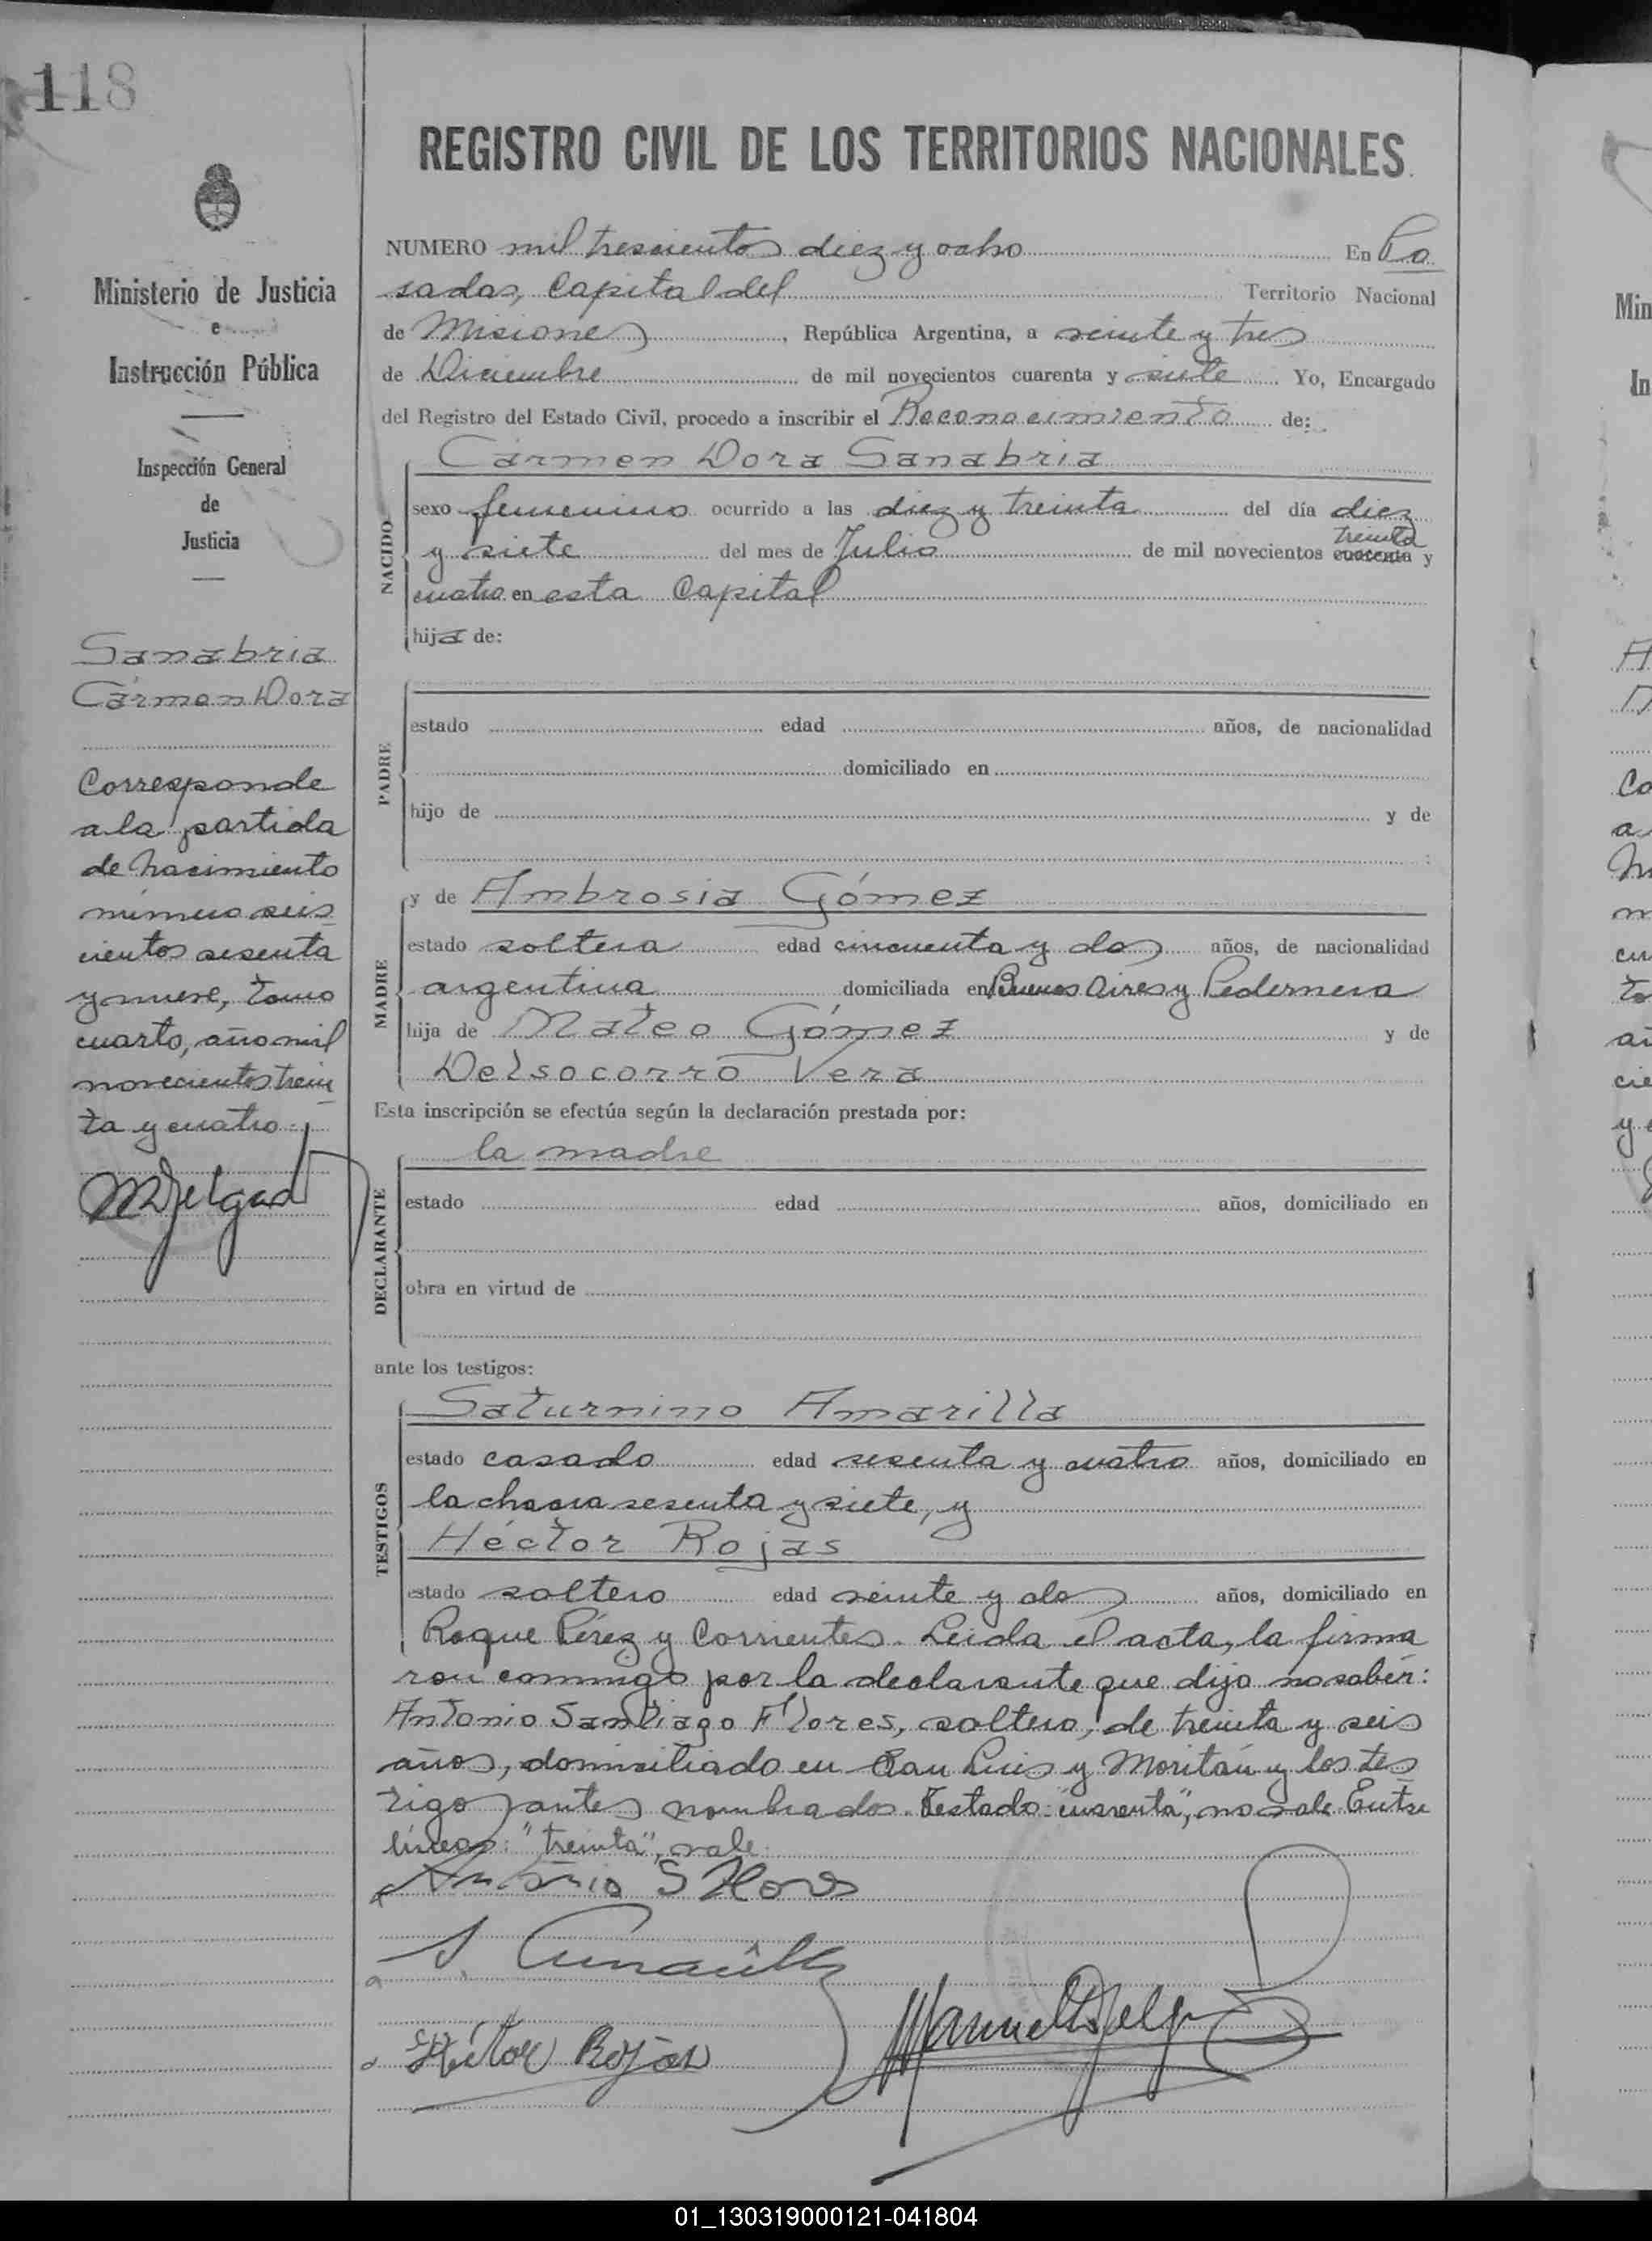 118
Ministerio de Justicia
e
Instrucción Pública
Inspección General
de
Justicia
Sanabria
Cármen Dora
Corresponde
a la partida
de nacimiento
número seis
cientos sesenta
y nueve, tomo
cuarto, año mil
novecientos trein
ta y cuatro.
MDelgado
REGISTRO CIVIL DE LOS TERRITORIOS NACIONALES
NUMERO mil trescientos diez y ocho En Po
sadas, Capital del Territorio Nacional
de Misiones, República Argentina, a veinte y tres
de Diciembre de mil novecientos cuarenta y siete Yo, Encargado
del Registro del Estado Civil, procedo a inscribir el Reconocimiento de:
Cármen Dora Sanabria
NACIDO
sexo femenino ocurrido a las diez y treinta del día diez
treinta
y siete del mes de Julio de mil novecientos cuarenta y
cuatro en esta Capital
hija de:
PADRE
estado edad años, de nacionalidad
domiciliado en
hijo de y de
MADRE
y de Ambrosia Gómez
estado soltera edad cincuenta y dos años, de nacionalidad
argentina domiciliada en Buenos Aires y Pedernera
hija de Mateo Gómez y de
Delsocorro Vera
Esta inscripción se efectúa según la declaración prestada por:
DECLARANTE
la madre
estado edad años, domiciliado en
obra en virtud de
ante los testigos:
TESTIGOS
Saturnino Amarilla
estado casado edad sesenta y cuatro años, domiciliado en
la chacra sesenta y siete, y
Héctor Rojas
estado soltero edad veinte y dos años, domiciliado en
Roque Pérez y Corrientes. Leida el acta, la firma
ron conmigo por la declarante que dijo no saber:
Antonio Santiago Flores, soltero, de treinta y seis
años, domiciliado en San Luis y Moritán y los tes
tigos antes nombrados. Testado: "cuarenta", no vale. Entre
líneas: "treinta", vale.
Antonio S Flores
Héctor Rojas
01_130319000121-041804